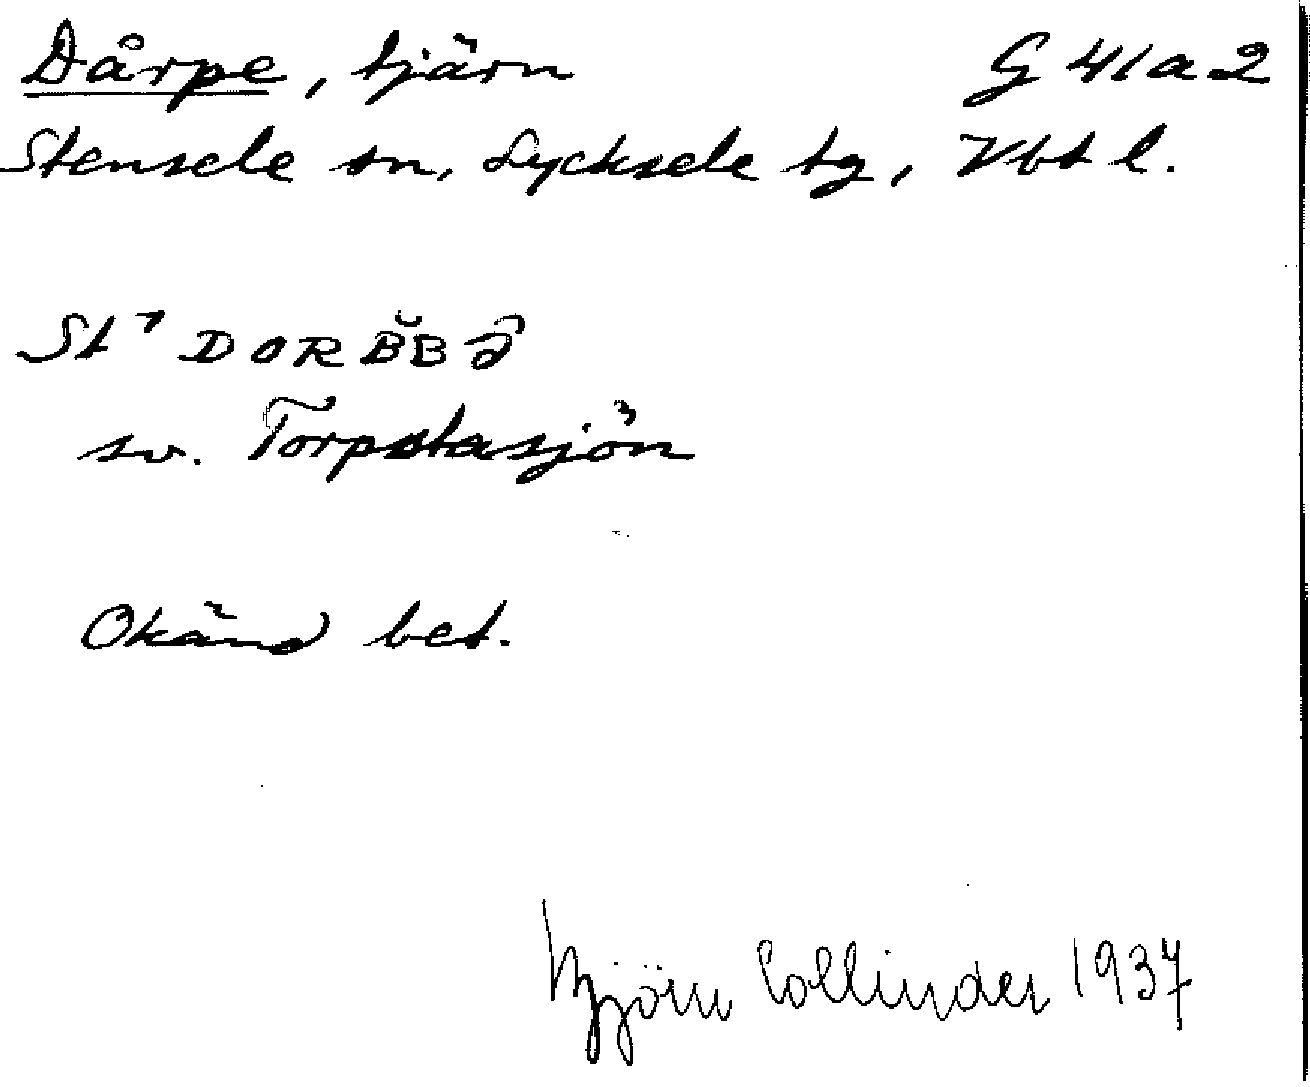 Dårpe, tjärn G 41 a 2
Stensele sn, Lycksele tg, Vbt l.
St⁷ DORB̆Bə̑
sv. Torpstasjön
Okänd bet.
Björn Collinder 1937